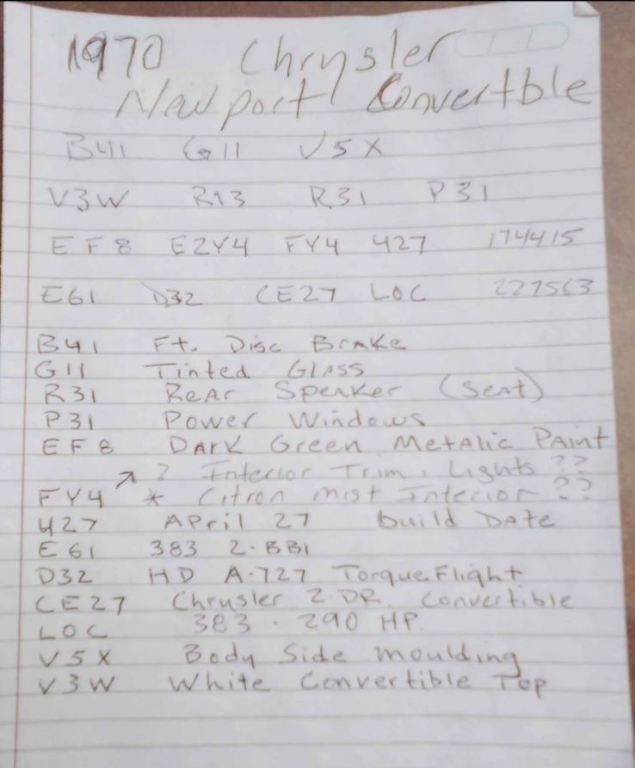 1970 Chrysler
Newport Convertble
B41 G11 V5X
V3W R13 R31 P31
EF8 EZY4 FY4 427 174415
E61 D32 CE27 LOC 227563
B41 Ft. Disc Brake
G11 Tinted Glass
R31 Rear Speaker (Seat)
P31 Power Windows
EF8 Dark Green Metalic Paint
↗ ? Interior Trim, Lights ??
FY4 * Citron mist Interior ??
427 April 27 Build Date
E61 383 2-BBl
D32 HD A-727 TorqueFlight
CE27 Chrysler 2 DR. Convertible
LOC 383 - 290 HP.
V5X Body Side moulding
V3W White Convertible Top